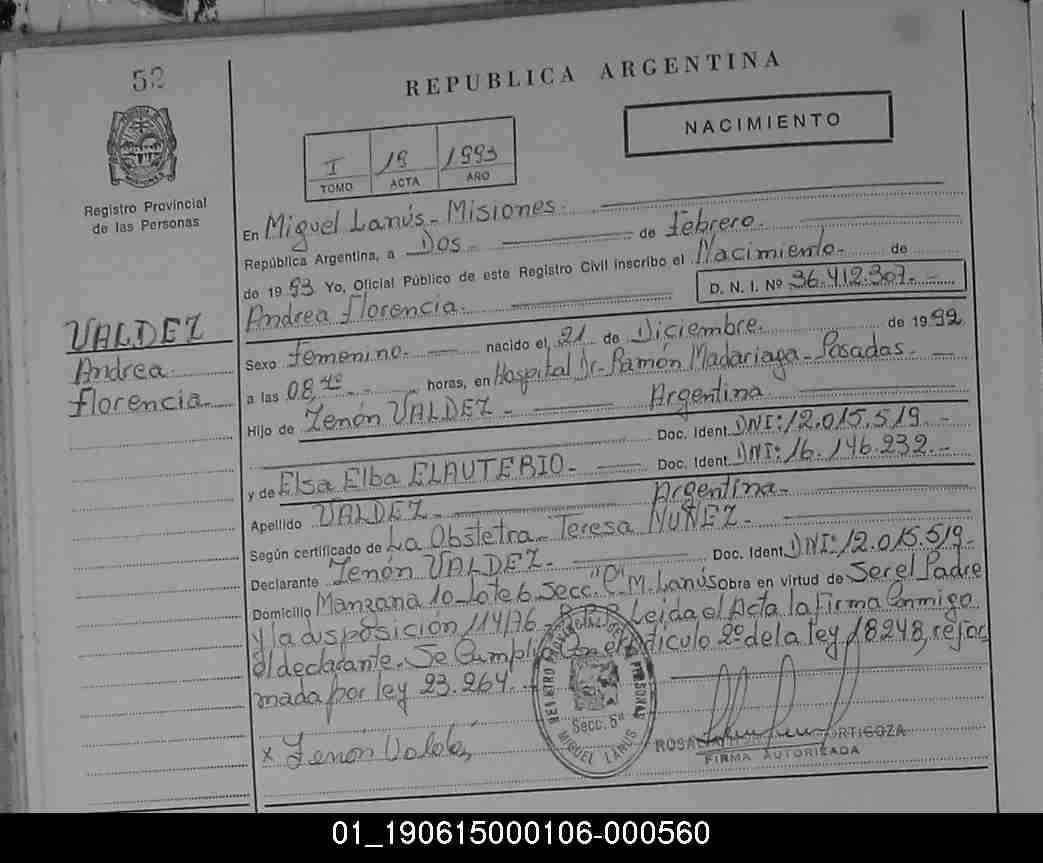 52
REPUBLICA ARGENTINA
NACIMIENTO
I 19 1993
TOMO ACTA AÑO
Registro Provincial
de las Personas
En Miguel Lanús - Misiones.
República Argentina, a Dos - de Febrero.
de 1993 Yo, Oficial Público de este Registro Civil inscribo el Nacimiento - de
Andrea Florencia. D. N. I. Nº 36.412.307.-
VALDEZ
Andrea
Florencia
Sexo Femenino. nacido el 21 de Diciembre. de 1992
a las 08,40 horas, en Hospital Dr. Ramón Madariaga - Posadas.
Hijo de Zenón VALDEZ - Argentina
Doc. Ident. DNI: 12.015.519.-
y de Elsa Elba ELAUTERIO. Doc. Ident. DNI: 16.146.232.-
Apellido VALDEZ - Argentina -
Según certificado de La Obstetra - Teresa NUÑEZ -
Declarante Zenón VALDEZ - Doc. Ident. DNI: 12.015.519.-
Domicilio Manzana 10 - Lote 6. Secc. "C" M. Lanús obra en virtud de Ser el Padre
y la disposición 114/76 - Leida el Acta la Firma Conmigo
el declarante. Se Cumplió Con el Artículo 2º de la ley 18248, refor
mada por ley 23.264.-
x Zenon Valdez
REGISTRO PROVINCIAL DE LAS PERSONAS
Secc. 5ª
MIGUEL LANUS
ORTIGOZA
FIRMA AUTORIZADA
01_190615000106-000560